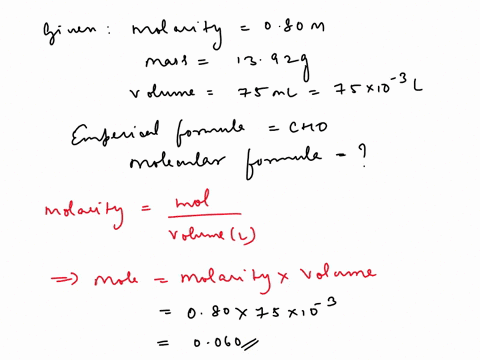 Given: molarity = 0.80M
mass = 13.92g
volume = 75 mL = 75×10⁻³ L
Emperical formula = CHO
molecular formula = ?
molarity = mol / volume (L)
⇒ mole = molarity × volume
= 0.80 × 75 × 10⁻³
= 0.060